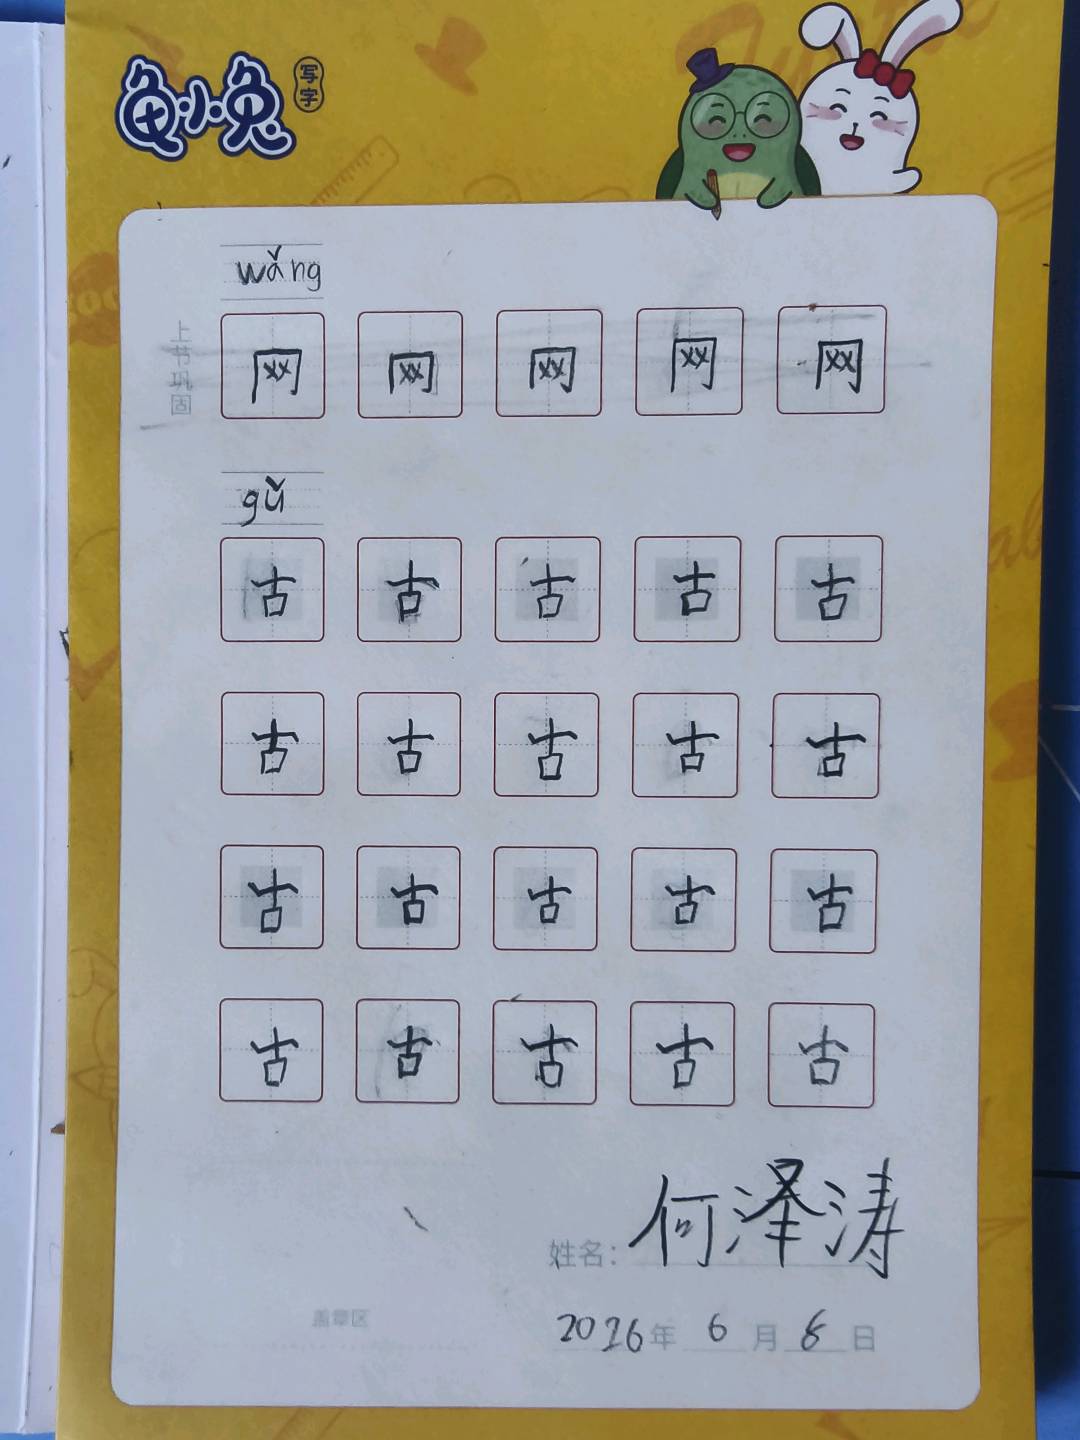 龟小兔
写字
wǎng
上书巩固
网 网 网 网 网
gǔ
古 古 古 古 古
古 古 古 古 古
古 古 古 古 古
古 古 古 古 古
姓名: 何泽涛
盖章区
2026年 6 月 8 日